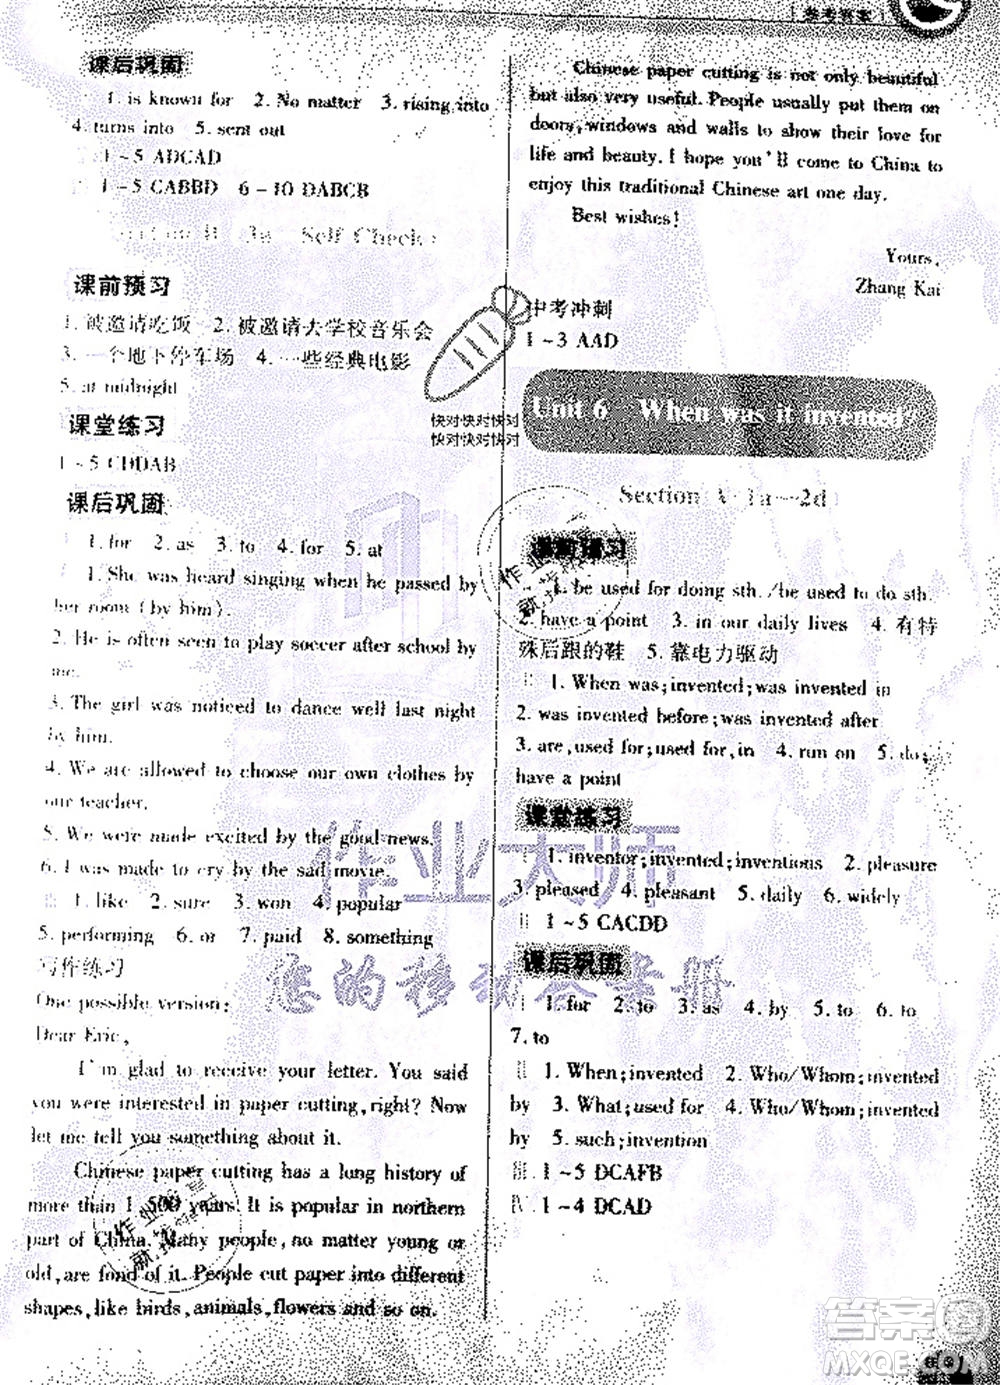 参考答案
课后巩固
1. is known for 2. No matter 3. rising into
4. turns into 5. sent out
1~5 ADCAD
1~5 CABBD 6-10 DABCB
3a Self Check
课前预习
1. 被邀请吃饭 2. 被邀请去学校音乐会
3. 一个地下停车场 4. 一些经典电影
5. at midnight
课堂练习
1~5 CDDAB
课后巩固
1. for 2. as 3. to 4. for 5. at
1. She was heard singing when he passed by
her room (by him).
2. He is often seen to play soccer after school by
me.
3. The girl was noticed to dance well last night
by him.
4. We are allowed to choose our own clothes by
our teacher.
5. We were made excited by the good news.
6. I was made to cry by the sad movie.
1. like 2. sure 3. won 4. popular
5. performing 6. or 7. paid 8. something
写作练习
One possible version:
Dear Eric,
I'm glad to receive your letter. You said
you were interested in paper cutting, right? Now
let me tell you something about it.
Chinese paper cutting has a long history of
more than 1 500 years. It is popular in northern
part of China. Many people, no matter young or
old, are fond of it. People cut paper into different
shapes, like birds, animals, flowers and so on.
Chinese paper cutting is not only beautiful
but also very useful. People usually put them on
doors, windows and walls to show their love for
life and beauty. I hope you'll come to China to
enjoy this traditional Chinese art one day.
Best wishes!
Yours,
Zhang Kai
中考冲刺
1-3 AAD
Unit 6 When was it invented?
Section A 1a—2d
课前预习
1. be used for doing sth. /be used to do sth.
2. have a point 3. in our daily lives 4. 有特
殊后跟的鞋 5. 靠电力驱动
1. When was; invented; was invented in
2. was invented before; was invented after
3. are, used for; used for, in 4. run on 5. do;
have a point
课堂练习
1. inventor; invented; inventions 2. pleasure
3. pleased 4. pleasant 5. daily 6. widely
1~5 CACDD
课后巩固
1. for 2. to 3. as 4. by 5. to 6. to
7. to
1. When; invented 2. Who/Whom; invented
by 3. What; used for 4. Who/Whom; invented
by 5. such; invention
1~5 DCAFB
1~4 DCAD
快对快对快对
快对快对快对
作业大师
您的移动答案册
答案圈
MXQE.COM